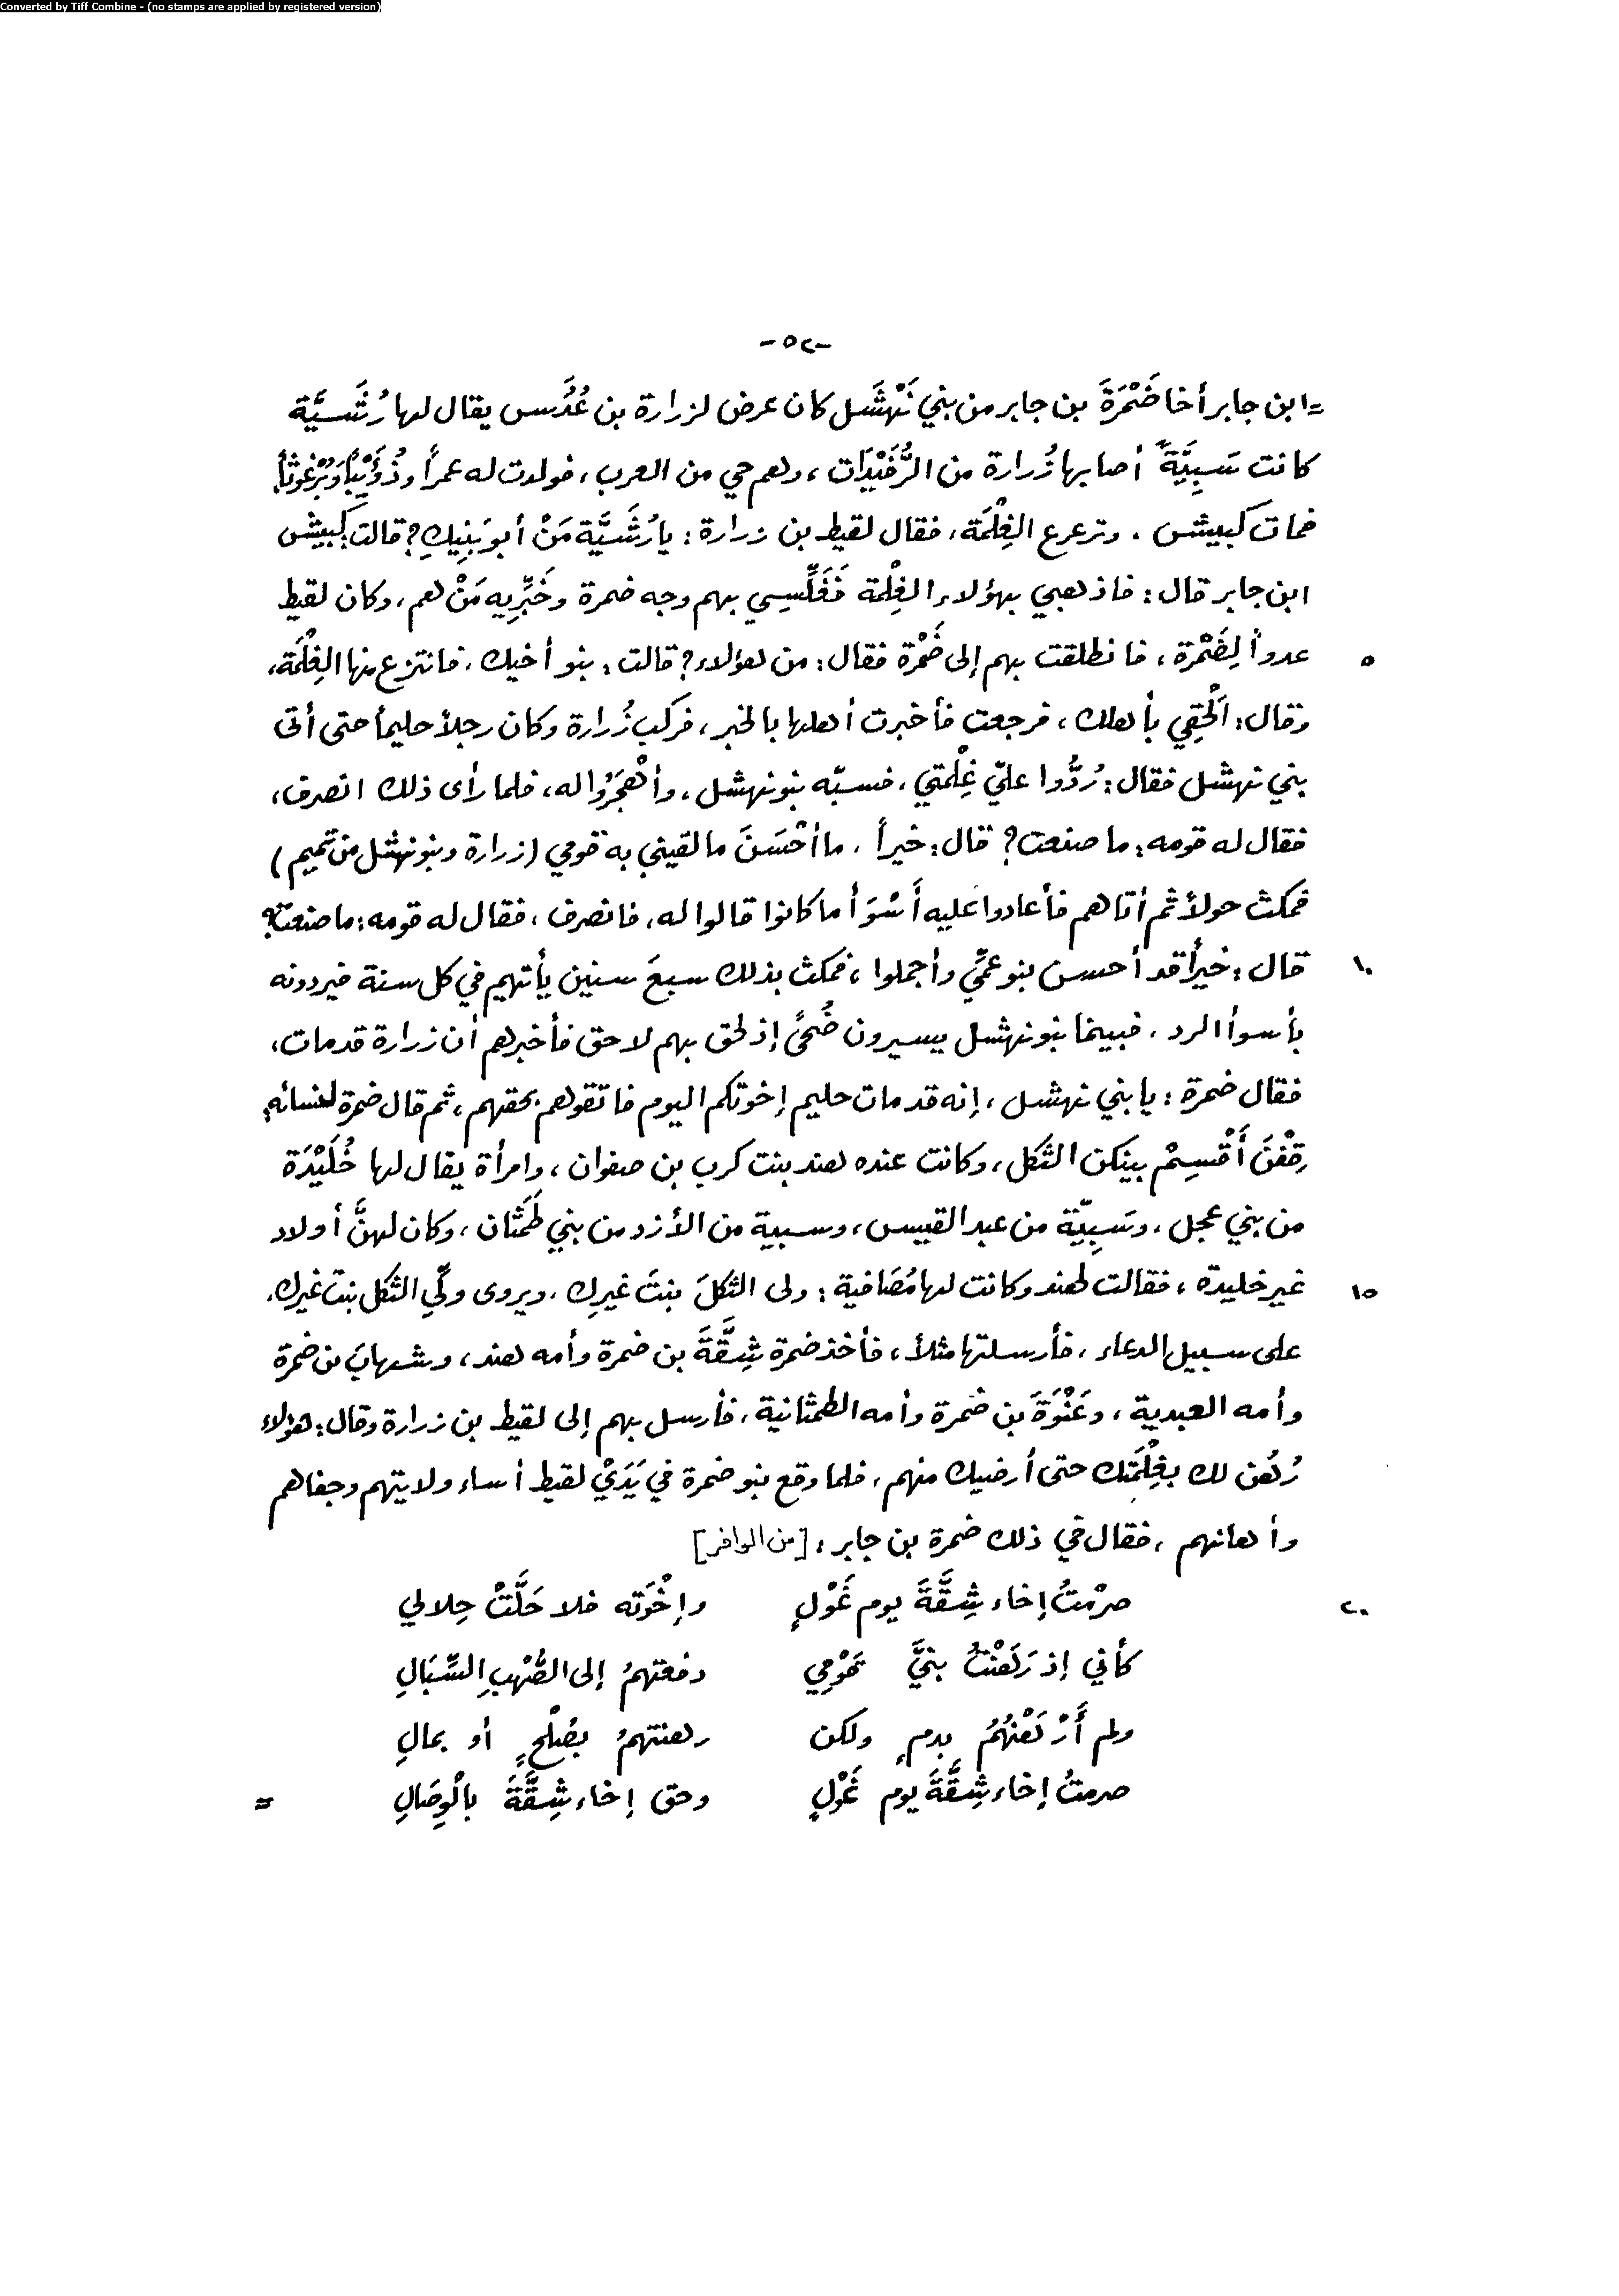 Converted by Tiff Combine - (no stamps are applied by registered version)
-٥٢-
=ابن جابر أخا ضَمْرَةَ بن جابر من بني نَهْشَل كان عرض لزرارة بن عُدُس يقال لها رُشَيَّة
كانت سَبِيَّةً أصابها زُرارة من الرُّفَيْدَات، وهم حي من العرب، فولدت له عمراً وذُؤَيْباً وبُرْغوثاً.
فمات كبيش. وترعرع الغِلْمَة، فقال لقيط بن زرارة: يا رُشَيَّة مَنْ أبو بَنِيكِ؟ قالت: كُبيش
ابن جابر قال: فاذهبي بهؤلاء الغِلْمة فَغَلِّسِي بهم وجه ضمرة وخَبِّرِيه مَنْ هم، وكان لقيط
عدواً لِضَمْرة، فانطلقت بهم إلى ضَمْرة فقال: من هؤلاء؟ قالت: بنو أخيك، فانتزع منها الغِلْمَة،
٥
وقال: اَلْحَقِي بأهلك، فرجعت فأخبرت أهلها بالخبر، فركب زُرارة وكان رجلاً حليماً حتى أتى
بني نهشل فقال: رُدُّوا عليّ غِلْمتي، فسبّه بنو نهشل، وأهْجَرُوا له، فلما رأى ذلك انصرف،
فقال له قومه: ما صنعت؟ قال: خيراً، ما أحْسَنَ ما لقيني به قومي (زرارة وبنو نهشل من تميم)
فمكث حولاً ثم أتاهم فأعادوا عليه أَسْوَأ ما كانوا قالوا له، فانصرف، فقال له قومه: ما صنعت؟
قال: خيراً قد أحسن بنو عمِّي وأجملوا، فمكث بذلك سبعَ سنين يأتيهم في كل سنة فيردونه
١٠
بأسوأ الرد، فبينما بنو نهشل يسيرون ضُحىً إذ لحق بهم لاحق فأخبرهم أن زرارة قد مات،
فقال ضمرة: يا بني نهشل، إنه قد مات حليم إخوتكم اليوم فاتقوهم بحقهم، ثم قال ضمرة لنسائه:
قِفْنَ أَقْسِمْ بينكن الثكل، وكانت عنده هند بنت كرب بن صفوان، وامرأة يقال لها خُلَيْدَة
من بني عجل، وسَبِيّة من عبد القيس، وسبية من الأزد من بني طَمَثَان، وكان لهنَّ أولاد
غير خليدة، فقالت لهند وكانت لها مُصَافية: ولى الثكلَ بنتَ غيرِك، ويروى ولِّي الثكل بنت غيرك،
١٥
على سبيل الدعاء، فأرسلتها مثلاً، فأخذ ضمرة شِقَّةَ بن ضمرة وأمه هند، وشهابَ بن ضمرة
وأمه العبدية، وعَنْوَةَ بن ضمرة وأمه الطمثانية، فأرسل بهم إلى لقيط بن زرارة وقال: هؤلاء
رُهُن لك بغِلْمَتك حتى أرضيك منهم، فلما وقع بنو ضمرة في يَدَيْ لقيط أساء ولايتهم وجفاهم
وأهانهم، فقال في ذلك ضمرة بن جابر: [من الوافر]
صرمْتُ إخاء شِقَّةَ يوم غَوْلٍ وإخْوَته فلا حَلَّتْ حِلالي
٢٠
كأني إذ رَهَنْتُ بنيَّ قَوْمِي دفعتهمُ إلى الصُّهْبِ السِّبَالِ
ولم أَرْهَنْهُمُ بدمٍ ولكن رهنتهمُ بصُلْحٍ أو بمالِ
صرمتُ إخاء شِقَّةَ يوم غَوْلٍ وحق إخاء شِقَّةَ بالْوِصَالِ
=